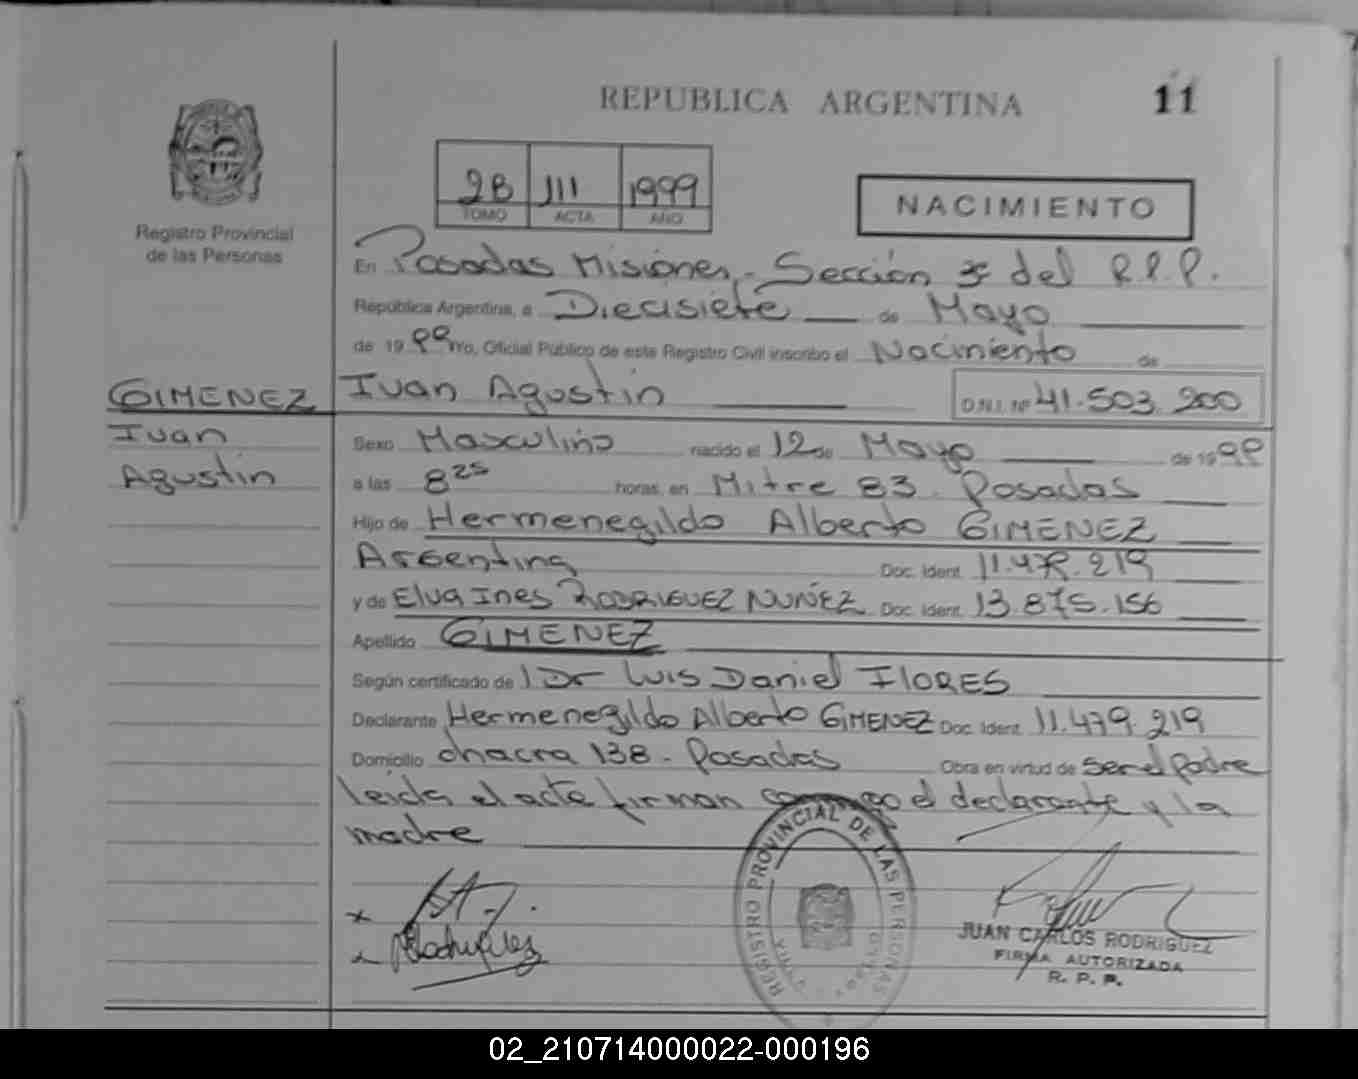 REPUBLICA ARGENTINA
11
2B 111 1999
TOMO ACTA AÑO
NACIMIENTO
Registro Provincial
de las Personas
En Posadas Misiones, Sección 3º del R.P.P.
República Argentina, a Diecisiete de Mayo
de 1999 Yo, Oficial Público de este Registro Civil inscribo el Nacimiento de
GIMENEZ
Ivan Agustin D.N.I. Nº 41.503.200
Ivan
Agustin
Sexo Masculino nacido el 12 de Mayo de 1999
a las 8 25 horas, en Mitre 83. Posadas
Hijo de Hermenegildo Alberto GIMENEZ
Argentina Doc. Ident. 11.479.219
y de Elva Ines RODRIGUEZ NUÑEZ Doc. Ident. 13.875.156
Apellido GIMENEZ
Según certificado de Dr Luis Daniel FLORES
Declarante Hermenegildo Alberto GIMENEZ Doc. Ident. 11.479.219
Domicilio chacra 138 - Posadas Obra en virtud de ser el padre
leida el acta firman conmigo el declarante y la
madre
REGISTRO PROVINCIAL DE LAS PERSONAS
Rodriguez
JUAN CARLOS RODRIGUEZ
FIRMA AUTORIZADA
R. P. P.
02_210714000022-000196